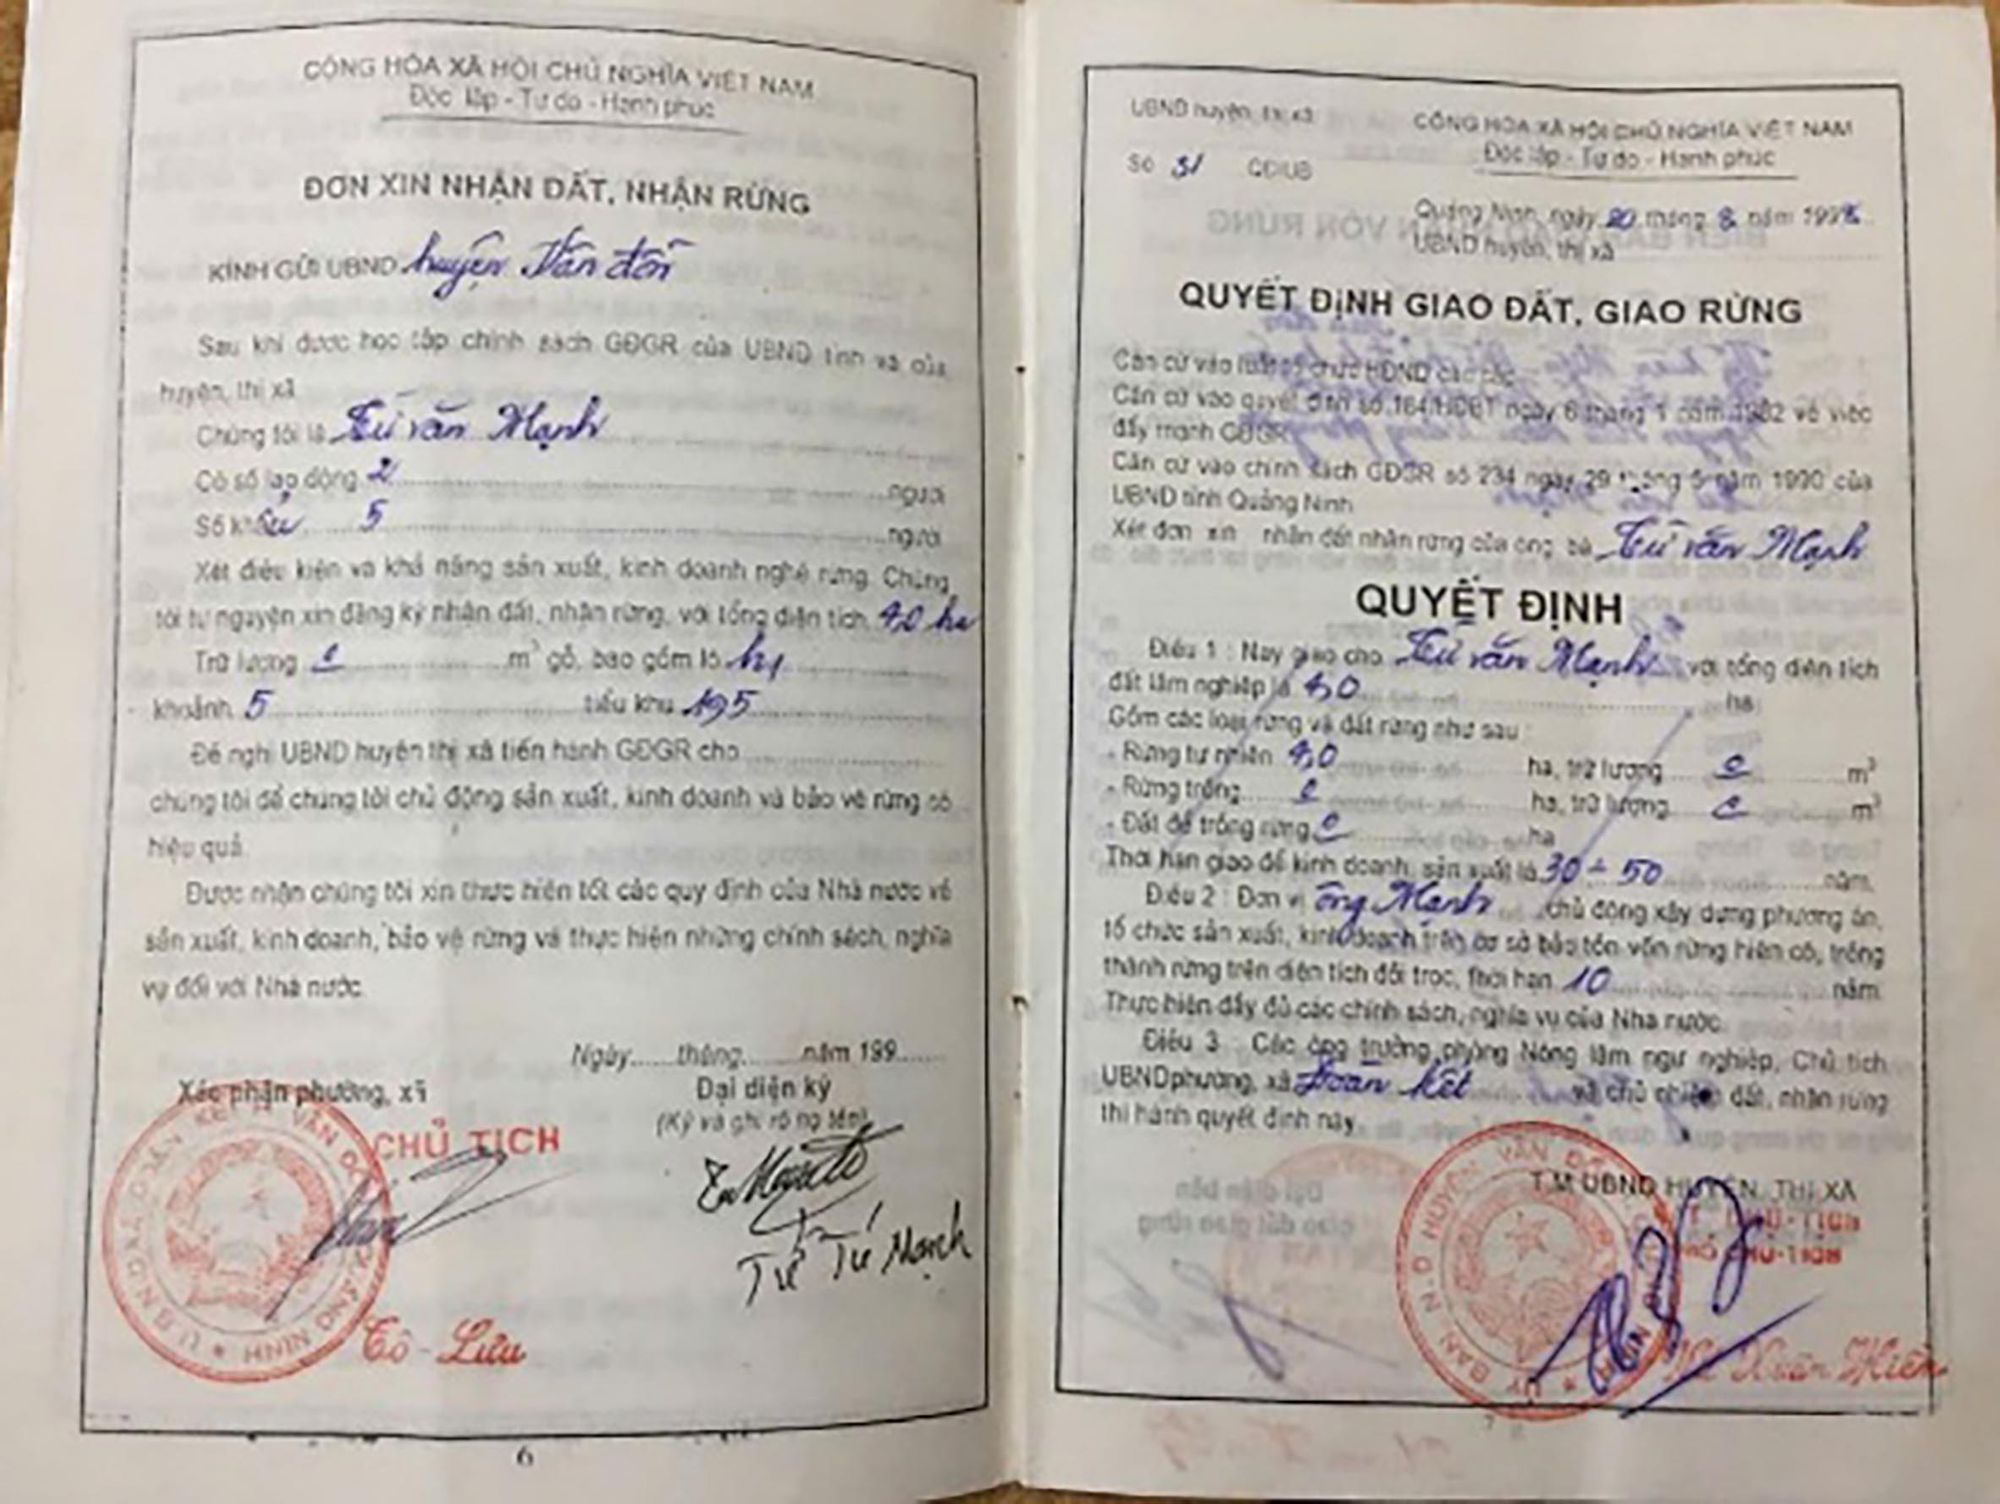 CỘNG HÒA XÃ HỘI CHỦ NGHĨA VIỆT NAM
Độc lập - Tự do - Hạnh phúc
ĐƠN XIN NHẬN ĐẤT, NHẬN RỪNG
KÍNH GỬI UBND huyện Vân đồn
Sau khi được học tập chính sách GĐGR của UBND tỉnh và của
huyện, thị xã
Chúng tôi là Từ văn Mạnh
Có số lao động 2 người
Số khẩu 5 người
Xét điều kiện và khả năng sản xuất, kinh doanh nghề rừng. Chúng
tôi tự nguyện xin đăng ký nhận đất, nhận rừng, với tổng diện tích 4,0 ha
Trữ lượng 0 m³ gỗ, bao gồm lô h1
khoảnh 5 tiểu khu 195
Đề nghị UBND huyện thị xã tiến hành GĐGR cho
chúng tôi để chúng tôi chủ động sản xuất, kinh doanh và bảo vệ rừng có
hiệu quả.
Được nhận chúng tôi xin thực hiện tốt các quy định của Nhà nước về
sản xuất, kinh doanh, bảo vệ rừng và thực hiện những chính sách, nghĩa
vụ đối với Nhà nước.
Ngày......tháng......năm 199......
Xác nhận phường, xã
Đại diện ký
(Ký và ghi rõ họ tên)
CHỦ TỊCH
Mạnh
Tô - Lưu
6
UBND huyện, thị xã
CỘNG HÒA XÃ HỘI CHỦ NGHĨA VIỆT NAM
Độc lập - Tự do - Hạnh phúc
Số 31 QĐ/UB
Quảng Ninh, ngày 20 tháng 8 năm 199
UBND huyện, thị xã
QUYẾT ĐỊNH GIAO ĐẤT, GIAO RỪNG
Căn cứ vào luật tổ chức HĐND các cấp
Căn cứ vào quyết định số 184/HĐBT ngày 6 tháng 1 năm 1982 về việc
đẩy mạnh GĐGR
Căn cứ vào chính sách GĐGR số 234 ngày 29 tháng 5 năm 1990 của
UBND tỉnh Quảng Ninh
Xét đơn xin nhận đất nhận rừng của ông, bà Từ văn Mạnh
QUYẾT ĐỊNH
Điều 1 : Nay giao cho Từ văn Mạnh với tổng diện tích
đất lâm nghiệp là 4,0 ha
Gồm các loại rừng và đất rừng như sau :
- Rừng tự nhiên 4,0 ha, trữ lượng 0 m³
- Rừng trồng 0 ha, trữ lượng 0 m³
- Đất để trồng rừng 0 ha
Thời hạn giao để kinh doanh, sản xuất là 30 - 50 năm.
Điều 2 : Đơn vị ông Mạnh chủ động xây dựng phương án,
tổ chức sản xuất, kinh doanh trên cơ sở bảo tồn vốn rừng hiện có, trồng
thành rừng trên diện tích đồi trọc, thời hạn 10 năm
Thực hiện đầy đủ các chính sách, nghĩa vụ của Nhà nước.
Điều 3 : Các ông trưởng phòng Nông lâm ngư nghiệp, Chủ tịch
UBND phường, xã Đoàn kết và chủ nhiệm đất, nhận rừng
thi hành quyết định này.
T.M UBND HUYỆN, THỊ XÃ